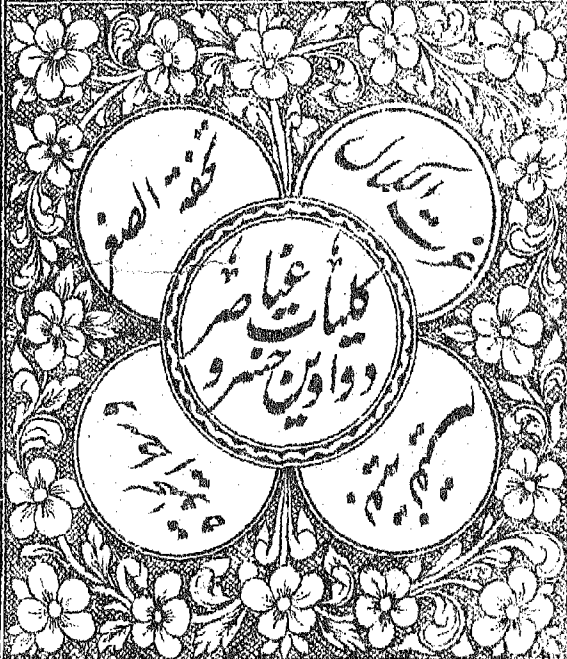 کلیات عناصر
دواوین خسرو
غرت الکمال
تحفة الصغر
بقیه نقیه